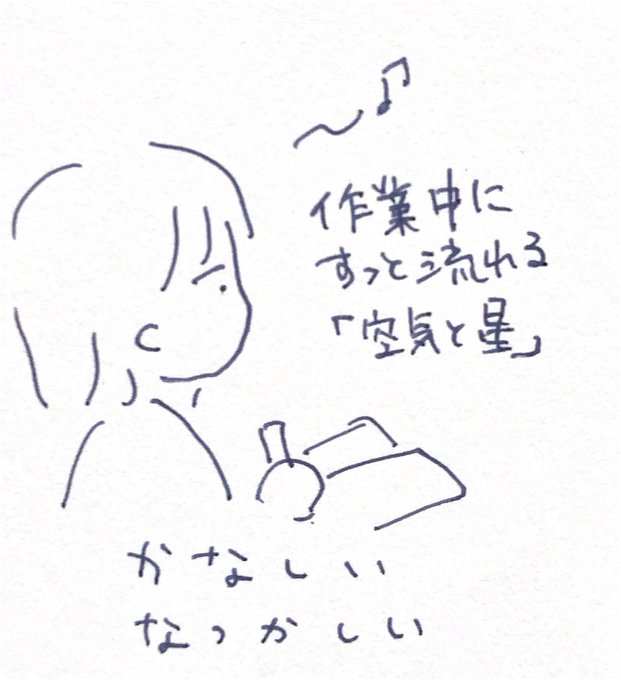 作業中に
ずっと流れる
「空気と星」
かなしい
なつかしい